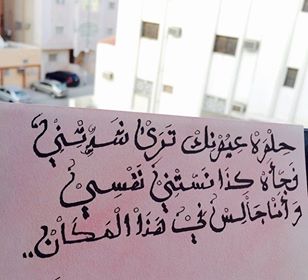 حلوه عيونك ترى شربتني
نجأه كذا نستني نفسي
وأنا جالس في هذا المكان..